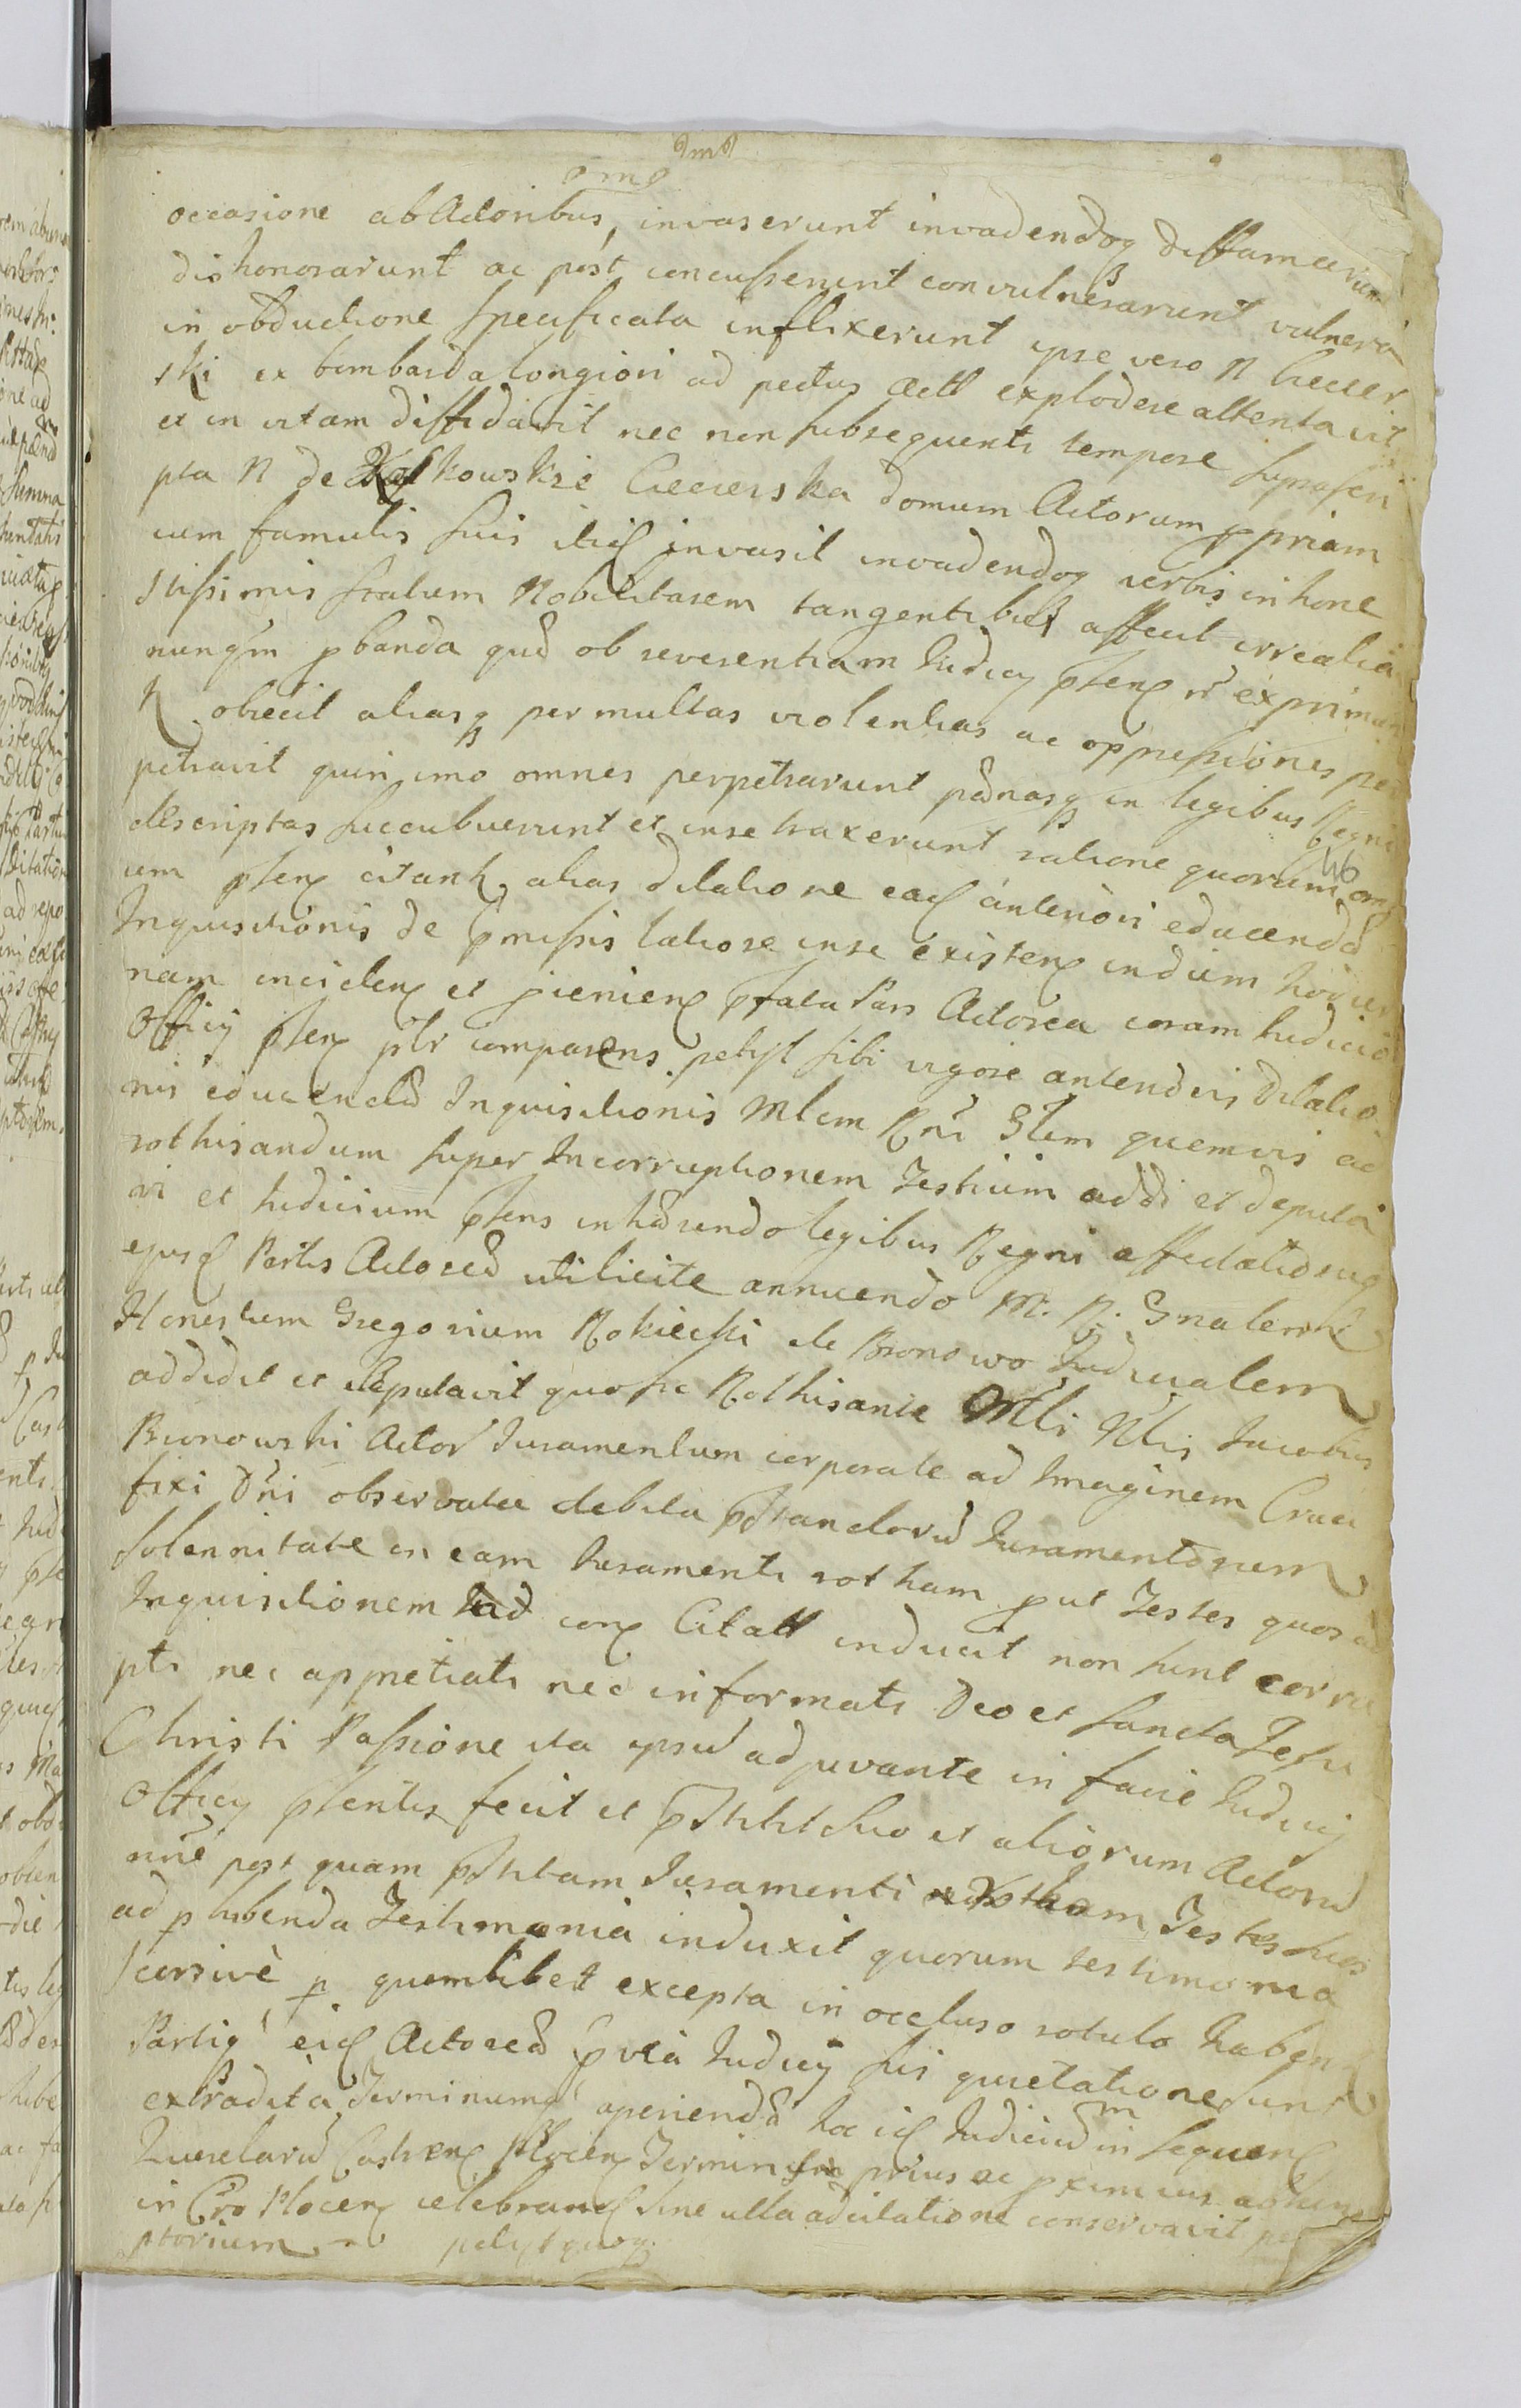 occasione ab Actoribus, invaserunt invadendoq diffamarunt
dishonorarunt ac post concusserunt convulnerarunt vulnera
in obductione specificata inflixerunt ipse vero N Ciecier
ski ex bombarda longiori ad pectus Actt explodere attentavit
et in vitam diffidavit nec non subsequenti tempore suprascri
pta N de Koskowskie Ciecierska domum Actorum ppriam
cum famulis suis invasit invadendoq verbis inhone
stissimis statum Nobilitarem tangentibus affecit irrealia
nunqm pbanda qud ob reverentiam Judicy pten n exprimun
obiecit aliasq per multas violentias ac oppressiones per
petravit quin imo omnes perpetrarunt pænasq in legibus Regni
descriptas succubuerunt et in se traxerunt ratione quorum om
ium pten citant, alias dilatione anteriori educendæ
Inquisitionis de pmissis latiore in se existen in diem hodier
nam inciden et pvenien ptata Pars Actorea coram Judicio
Officy pten ptr comparens petyt sibi vigore dilatio
nis educendæ Inquisitionis Mlem Rni Glem quemvis ad
rothisandum super Incorruptionem Testium addi et deputa
ri et Judicium ptens inhærendo legibus Regni affectationiq
ejusd Partis Actoreæ utilicite annuendo M. R. Gnalem
Honestum Gregorium Rokicki de Bronowo Judicialem
addidit et deputavit quo sic Rothisante Mli Nlis Jacobus
Bronowski Actor Juramentum corporale ad Imaginem Cruci
fixi Dni observata debita pstandorum Juramentorum
solennitate in eam Juramenti rotham put Testes quos ad
Inquisitionem con Citatt inducit non sunt corru
pti nec appretiati nec informati Deo et sancta Jesu
Christi Passione ita ipsum adjuvante in facie Judicy
Officy ptentis fecit et pstitit suo et aliorum Actorum
nne post quam pstitam Juramenti rotham Testes suos
ad phibenda Testimonia induxit quorum testimonia
seorsivè p quemlibet excepta in occluso rotulo habent
Partiq eid Actoreæ pvia Judicy sui quietatione sunt
extradita, Terminumq aperiendæ Judicium in sequen
Querelarum Castren Plocen Terminum prius ac pximius
in Cro Plocen celebran sine ulla adcitatione conservavit per
ptorium petyt quoq.